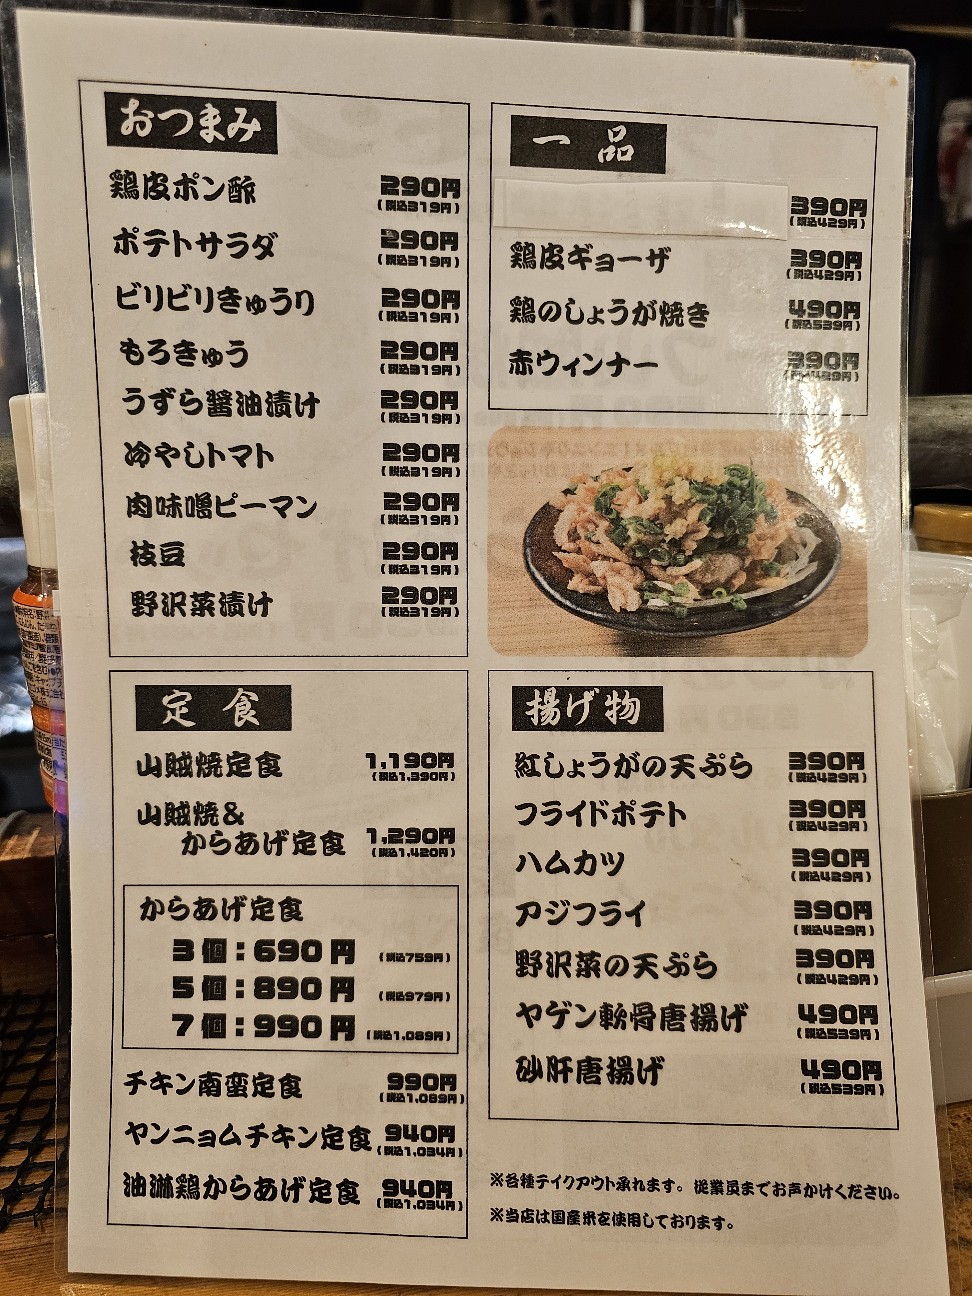 おつまみ
鶏皮ポン酢 290円
(税込319円)
ポテトサラダ 290円
(税込319円)
ビリビリきゅうり 290円
(税込319円)
もろきゅう 290円
(税込319円)
うずら醤油漬け 290円
(税込319円)
冷やしトマト 290円
(税込319円)
肉味噌ピーマン 290円
(税込319円)
枝豆 290円
(税込319円)
野沢菜漬け 290円
(税込319円)
一品
390円
(税込429円)
鶏皮ギョーザ 390円
(税込429円)
鶏のしょうが焼き 490円
(税込539円)
赤ウィンナー 390円
(税込429円)
定食
山賊焼定食 1,190円
(税込1,390円)
山賊焼&
からあげ定食 1,290円
(税込1,420円)
からあげ定食
3個:690円 (税込759円)
5個:890円 (税込979円)
7個:990円 (税込1,089円)
チキン南蛮定食 990円
(税込1,089円)
ヤンニョムチキン定食 940円
(税込1,034円)
油淋鶏からあげ定食 940円
(税込1,034円)
揚げ物
紅しょうがの天ぷら 390円
(税込429円)
フライドポテト 390円
(税込429円)
ハムカツ 390円
(税込429円)
アジフライ 390円
(税込429円)
野沢菜の天ぷら 390円
(税込429円)
ヤゲン軟骨唐揚げ 490円
(税込539円)
砂肝唐揚げ 490円
(税込539円)
※各種テイクアウト承れます。従業員までお声かけください。
※当店は国産米を使用しております。